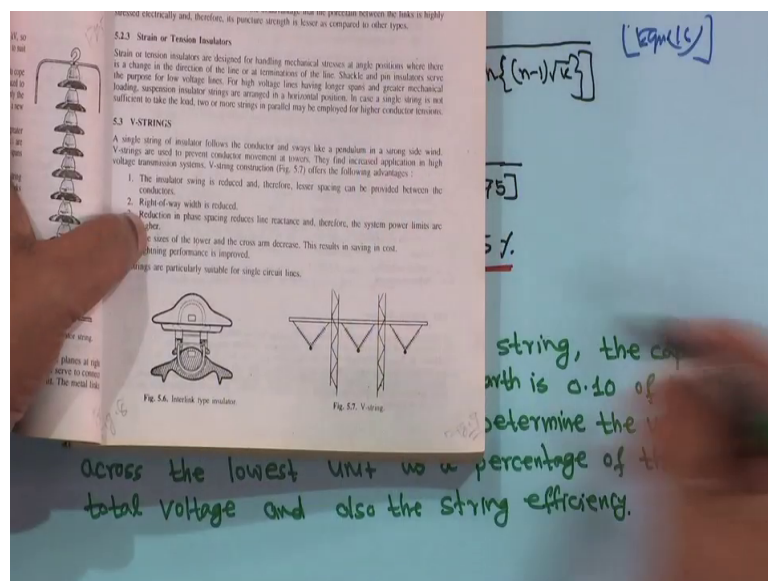 stressed electrically and, therefore, its puncture strength is lesser as compared to other types.
5.2.3 Strain or Tension Insulators
Strain or tension insulators are designed for handling mechanical stresses at angle positions where there
is a change in the direction of the line or at terminations of the line. Shackle and pin insulators serve
the purpose for low voltage lines. For high voltage lines having longer spans and greater mechanical
loading, suspension insulator strings are arranged in a horizontal position. In case a single string is not
sufficient to take the load, two or more strings in parallel may be employed for higher conductor tensions.
5.3 V-STRINGS
A single string of insulator follows the conductor and sways like a pendulum in a strong side wind.
V-strings are used to prevent conductor movement at towers. They find increased application in high
voltage transmission systems. V-string construction (Fig. 5.7) offers the following advantages :
1. The insulator swing is reduced and, therefore, lesser spacing can be provided between the
conductors.
2. Right-of-way width is reduced.
Reduction in phase spacing reduces line reactance and, therefore, the system power limits are
gher.
sizes of the tower and the cross arm decrease. This results in saving in cost.
htning performance is improved.
ings are particularly suitable for single circuit lines.
Fig. 5.6. Interlink type insulator.
Fig. 5.7. V-string.
tor string.
planes at righ
serve to connec
The metal link
[Eqn(16)]
n{(n-1)√K}]
75]
5%.
string, the cap
arth is 0.10 of
Determine the
across the lowest unit as a percentage of th
total voltage and also the string efficiency.